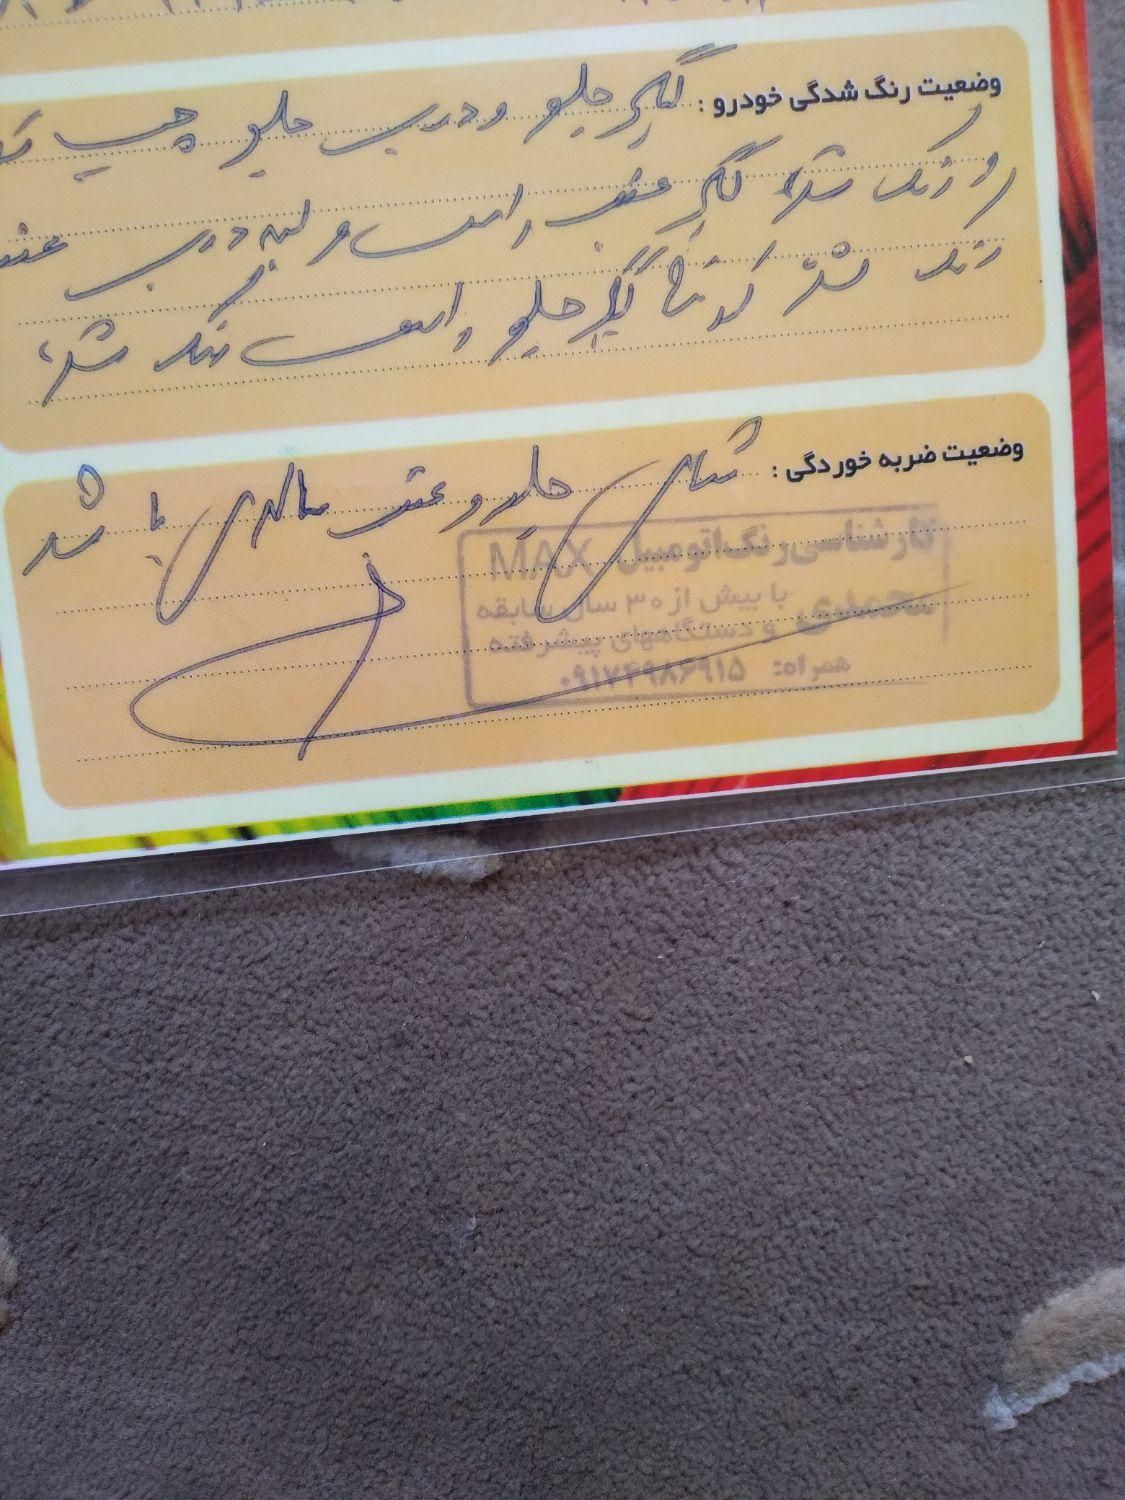 وضعیت رنگ شدگی خودرو : گلگیر جلو و درب جلو چپ
و رنگ شده گلگیر عقب راست و لبه درب
رنگ شده گلگیر جلو راست رنگ شده
وضعیت ضربه خوردگی : شاسی جلو و عقب سالم می باشد
کارشناسی رنگ اتومبیل MAX
محمدی با بیش از ۳۰ سال سابقه
و دستگاههای پیشرفته
همراه: ۰۹۱۷۴۹۸۶۹۱۵